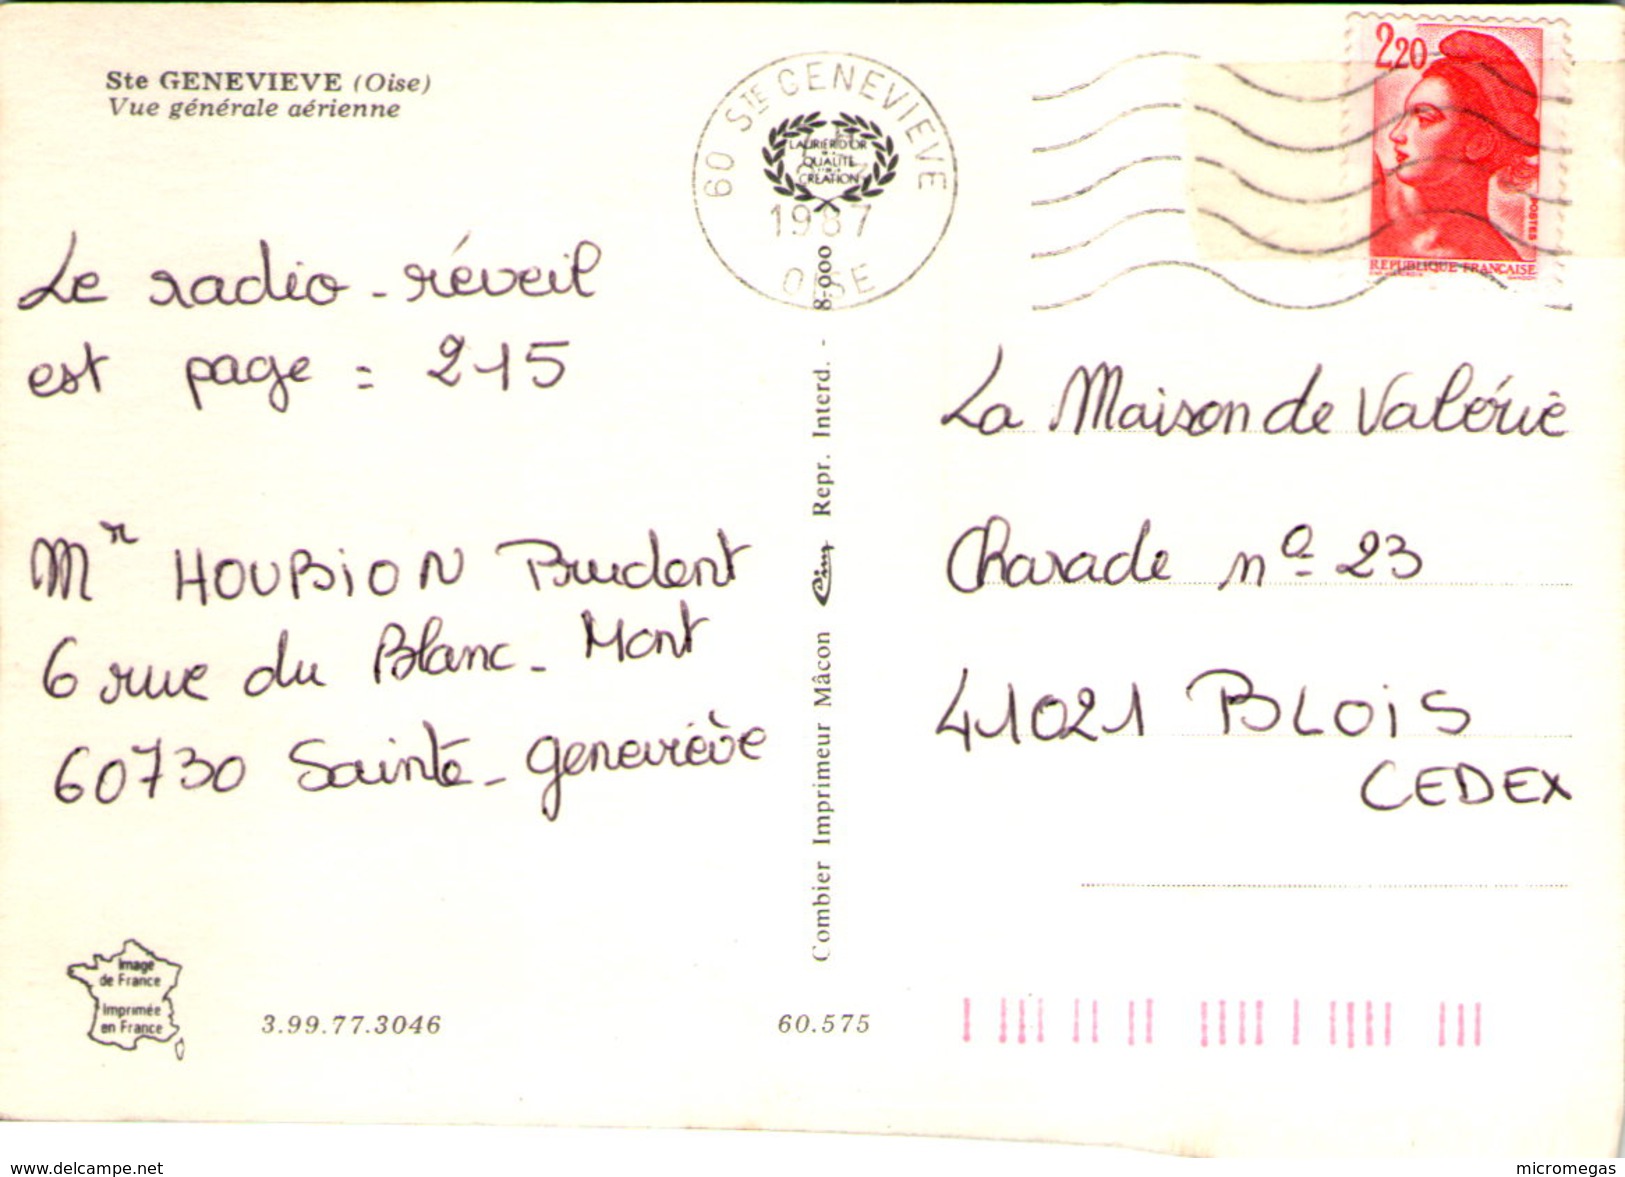 Ste GENEVIEVE (Oise)
Vue générale aérienne
60 STE GENEVIEVE
LAURIER D'OR
QUALITE
CREATION
1987
OISE
2,20
POSTES
REPUBLIQUE FRANÇAISE
Le radio-réveil
est page = 215
Mr HOUBION Prudent
6 rue du Blanc-Mont
60730 Sainte-Geneviève
La Maison de Valérie
Charade n° 23
41021 BLOIS
CEDEX
Combier Imprimeur Mâcon Cim Repr. Interd. - 8-000
Image
de France
Imprimée
en France
3.99.77.3046
60.575
www.delcampe.net
micromegas